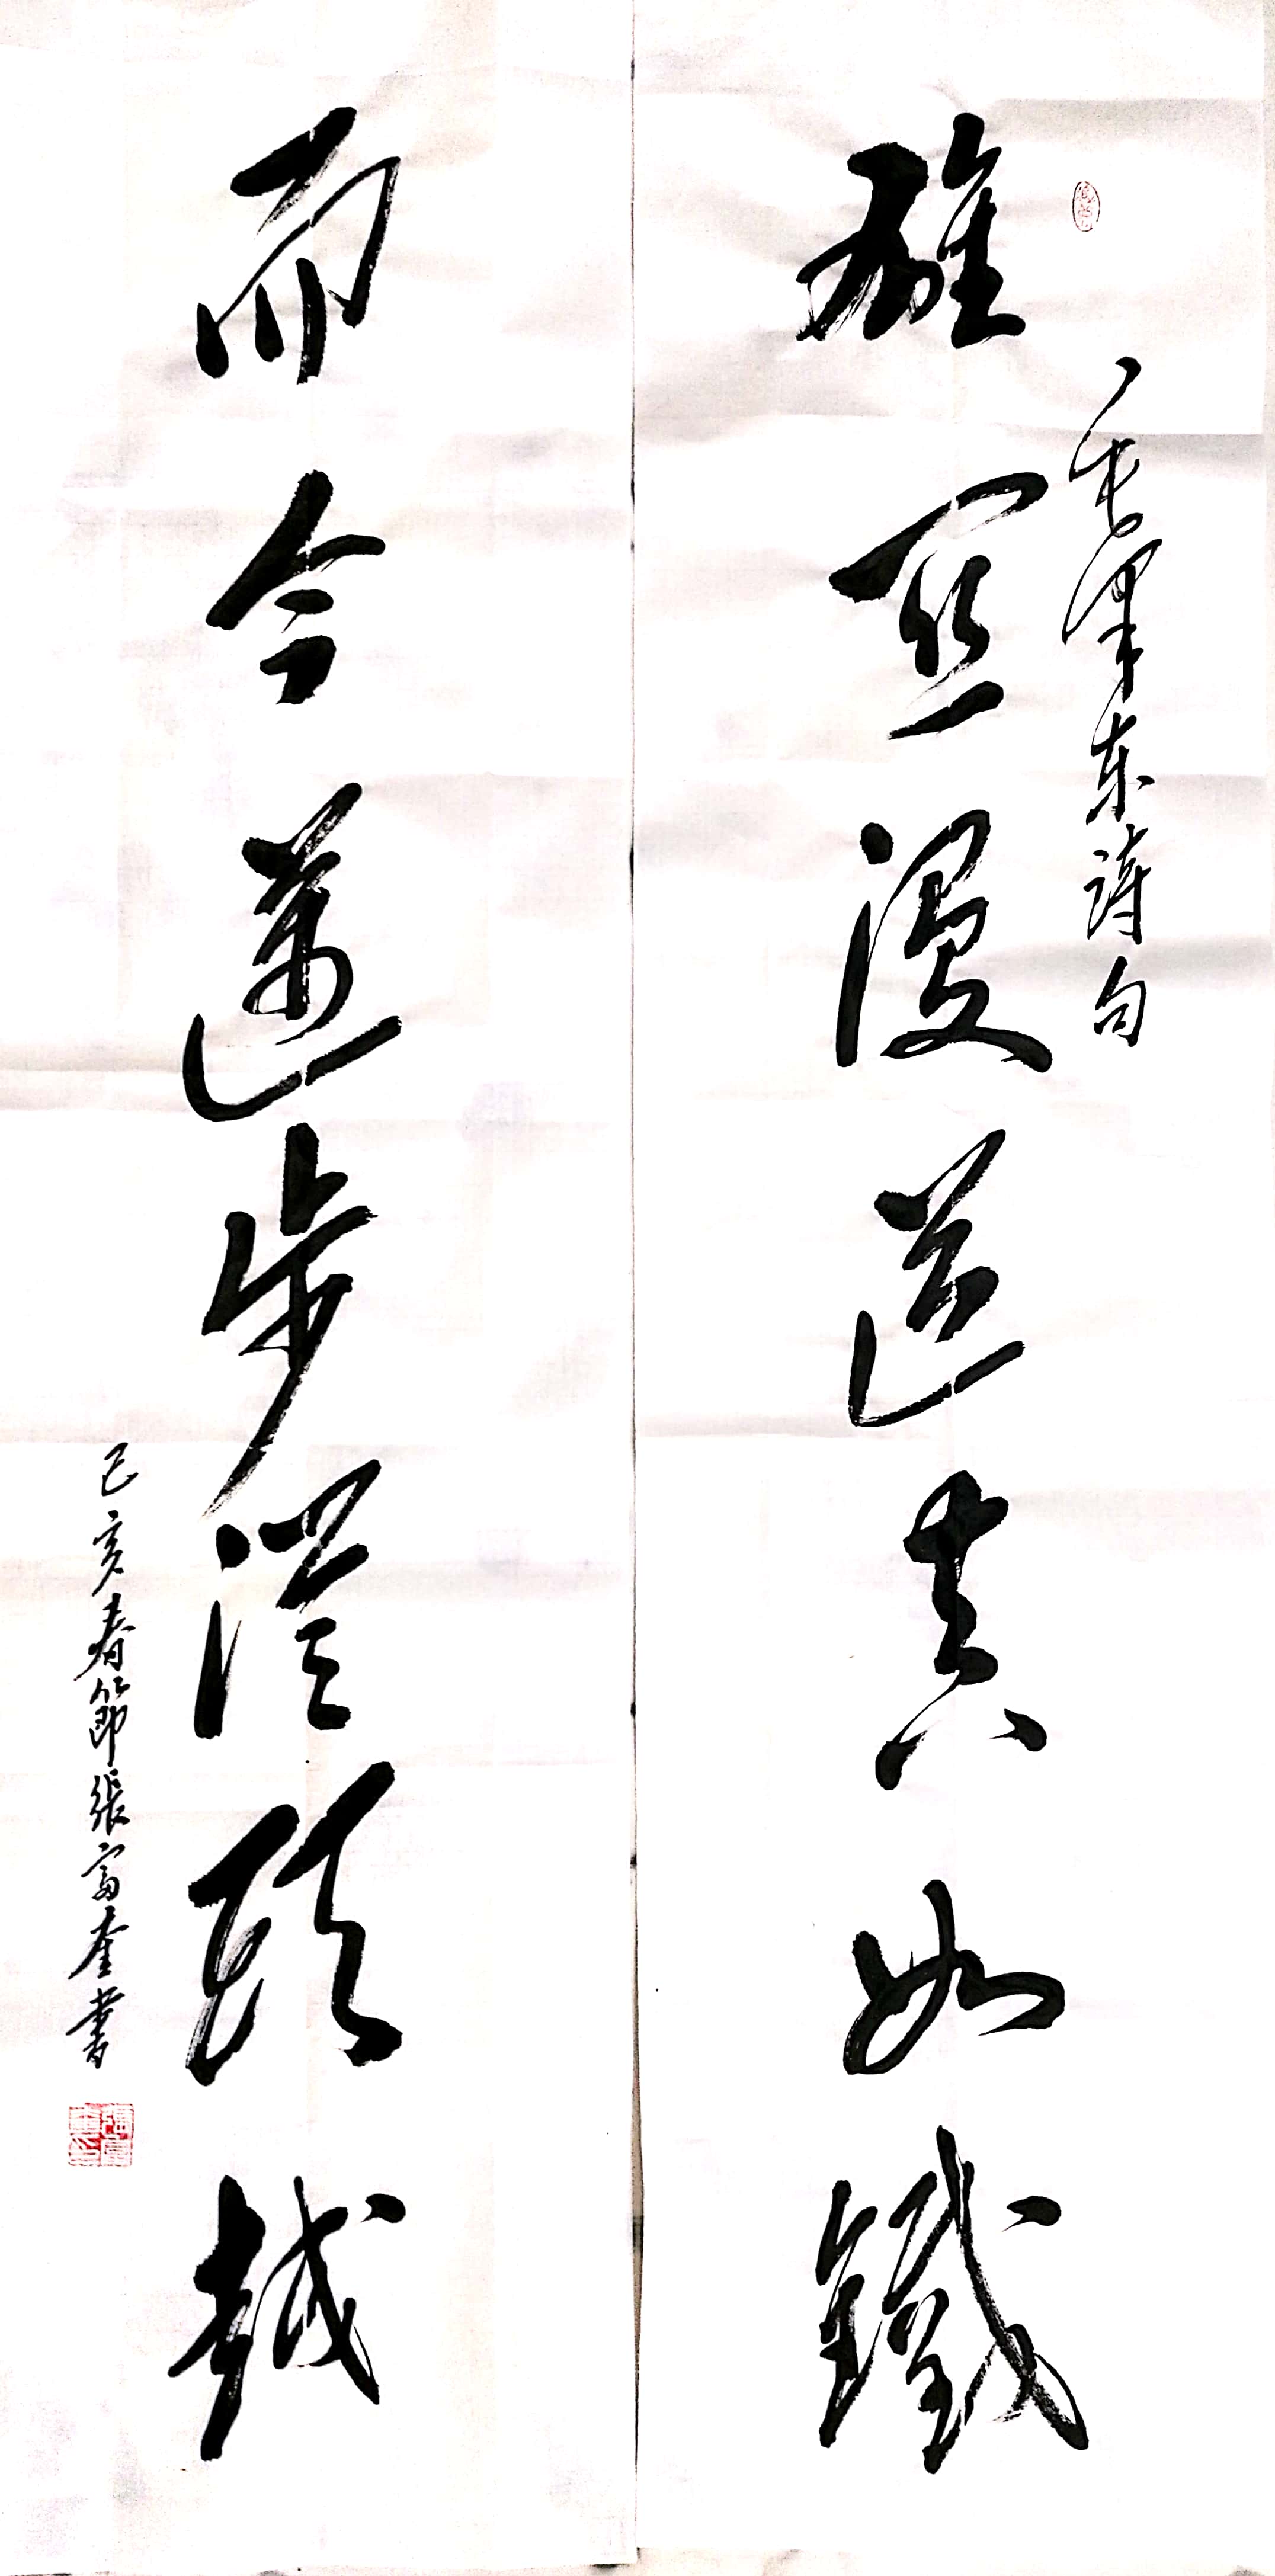 毛澤东詩句
雄關漫道真如鐵
而今邁步從頭越
己亥春節張富奎書